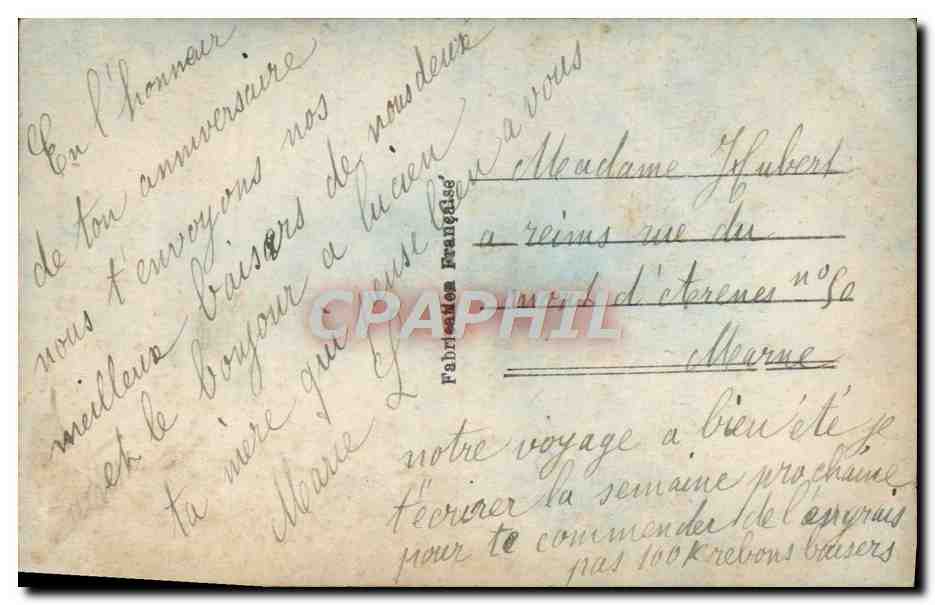 En l'honneur
de ton anniversaire
nous t'envoyons nos
meilleux baisers de nous deux
et le bonjour a lucien
ta mere qui pense bien a vous
Marie L
Fabrication Française
Madame Hubert
a reims rue du
mont d'Arenes n° 50
Marne
notre voyage a bien été je
t'écrirer la semaine prochaine
pour te commender de l'engrais
pas 100k rebons baisers
CPAPHIL